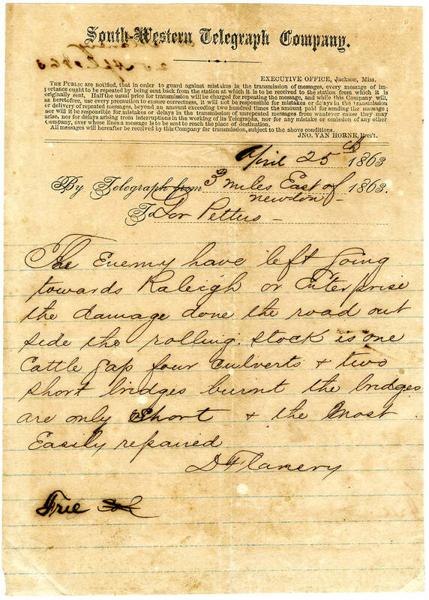 South-Western Telegraph Company.
EXECUTIVE OFFICE, Jackson, Miss.
THE PUBLIC are notified, that in order to guard against mistakes in the transmission of messages, every message of im-
portance ought to be repeated by being sent back from the station at which it is to be received to the station from which it is
originally sent. Half the usual price for transmission will be charged for repeating the message, and while this Company will,
as heretofore, use every precaution to ensure correctness, it will not be responsible for mistakes or delays in the transmission
or delivery of repeated messages, beyond an amount exceeding two hundred times the amount paid for sending the message; nor
will it be responsible for mistakes or delays in the transmission of unrepeated messages from whatever cause they may
arise, nor for delays arising from interruptions in the working of its Telegraphs, nor for any mistake or omission of any other
company, over whose lines a message is to be sent to reach the place of destination.
All messages will hereafter be received by this Company for transmission, subject to the above conditions.
JNO. VAN HORNE, Pres't.
April 25th 1863
By Telegraph from 3 miles East of 1863.
newton
To Gov Pettus
The Enemy have left going
towards Raleigh or Enterprise
the damage done the road out
side the rolling stock is one
Cattle gap four culverts & two
short bridges burnt the bridges
are only Short & the most
Easily repaired
D Flanery
Free